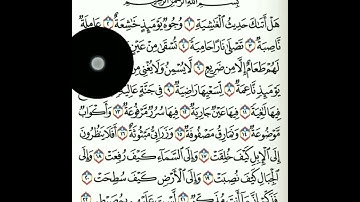 بِسْمِ اللَّهِ الرَّحْمَٰنِ الرَّحِيمِ
هَلْ أَتَىٰكَ حَدِيثُ ٱلْغَٰشِيَةِ ١ وُجُوهٌ يَوْمَئِذٍ خَٰشِعَةٌ ٢ عَامِلَةٌ
نَّاصِبَةٌ ٣ تَصْلَىٰ نَارًا حَامِيَةً ٤ تُسْقَىٰ مِنْ عَيْنٍ
لَهُمْ طَعَامٌ إِلَّا مِن ضَرِيعٍ ٦ لَّا يُسْمِنُ وَلَا يُغْنِي مِن
يَوْمَئِذٍ نَّاعِمَةٌ ٨ لِّسَعْيِهَا رَاضِيَةٌ ٩ فِي جَنَّةٍ عَالِيَةٍ
فِيهَا لَٰغِيَةً ١١ فِيهَا عَيْنٌ جَارِيَةٌ ١٢ فِيهَا سُرُرٌ مَّرْفُوعَةٌ ١٣ وَأَكْوَابٌ
مَّوْضُوعَةٌ ١٤ وَنَمَارِقُ مَصْفُوفَةٌ ١٥ وَزَرَابِيُّ مَبْثُوثَةٌ ١٦ أَفَلَا يَنظُرُونَ
إِلَى ٱلْإِبِلِ كَيْفَ خُلِقَتْ ١٧ وَإِلَى ٱلسَّمَاءِ كَيْفَ رُفِعَتْ ١٨ وَإِلَى
ٱلْجِبَالِ كَيْفَ نُصِبَتْ ١٩ وَإِلَى ٱلْأَرْضِ كَيْفَ سُطِحَتْ ٢٠